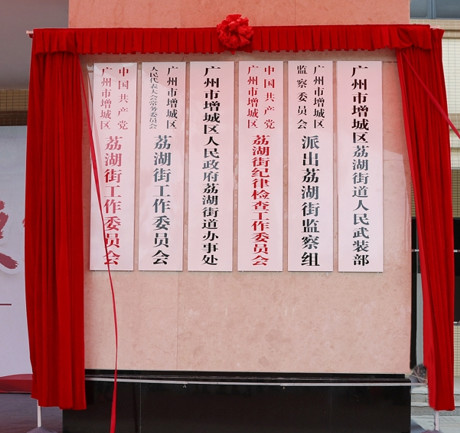 中国共产党
广州市增城区
荔湖街工作委员会
广州市增城区
人民代表大会常务委员会
荔湖街工作委员会
广州市增城区人民政府荔湖街道办事处
中国共产党
广州市增城区
荔湖街纪律检查工作委员会
广州市增城区
监察委员会
派出荔湖街监察组
广州市增城区荔湖街道人民武装部